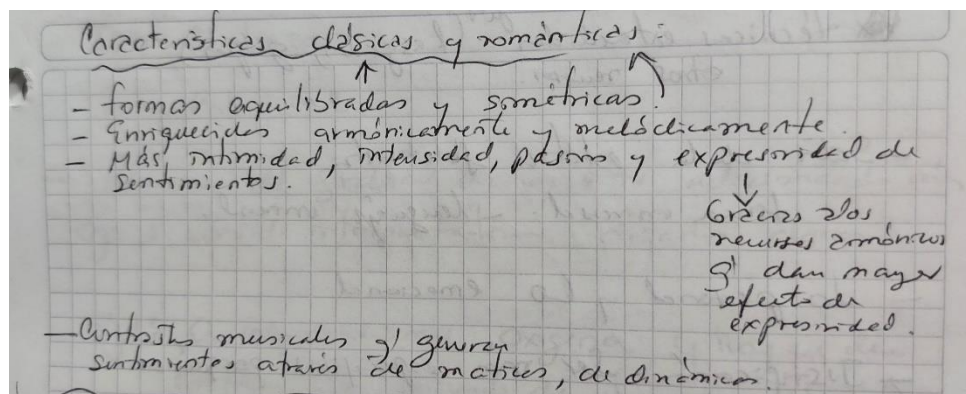 Características clásicas y románticas:
- formas equilibradas y simétricas.
- Enriquecidas armónicamente y melódicamente.
- Más intimidad, intensidad, pasión y expresividad de
sentimientos.
Gracias a los
recursos armónicos
q' dan mayor
efecto de
expresividad.
- Contrastes musicales q' generan
sentimientos através de matices, de dinámicas.